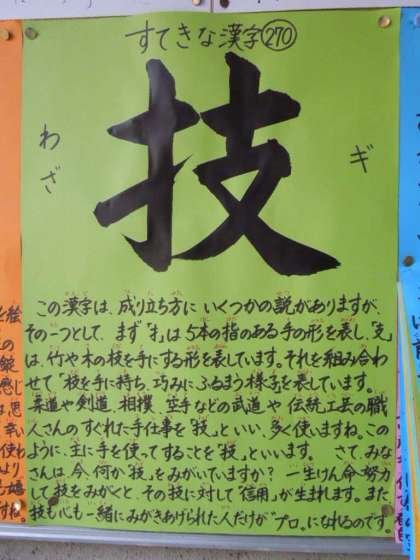 すてきな漢字270
技
わざ
ギ
この漢字は、成り立ち方に いくつかの説がありますが、
その一つとして、まず「扌」は 5本の指のある手の形を表し、「支」
は、竹や木の枝を手にする形を表しています。それを組み合わ
せて「枝を手に持ち、巧みにふるまう様子」を表しています。
柔道や剣道、相撲、空手などの武道や、伝統工芸の職
人さんのすぐれた手仕事を「技」といい、多く使いますね。この
ように、主に手を使ってすることを「技」といいます。 さて、みな
さんは、今、何か「技」をみがいていますか? 一生けん命努力
して技をみがくと、その技に対して「信用」が生まれます。また、
技も心も一緒にみがきあげられた人だけが“プロ”になれるのです。